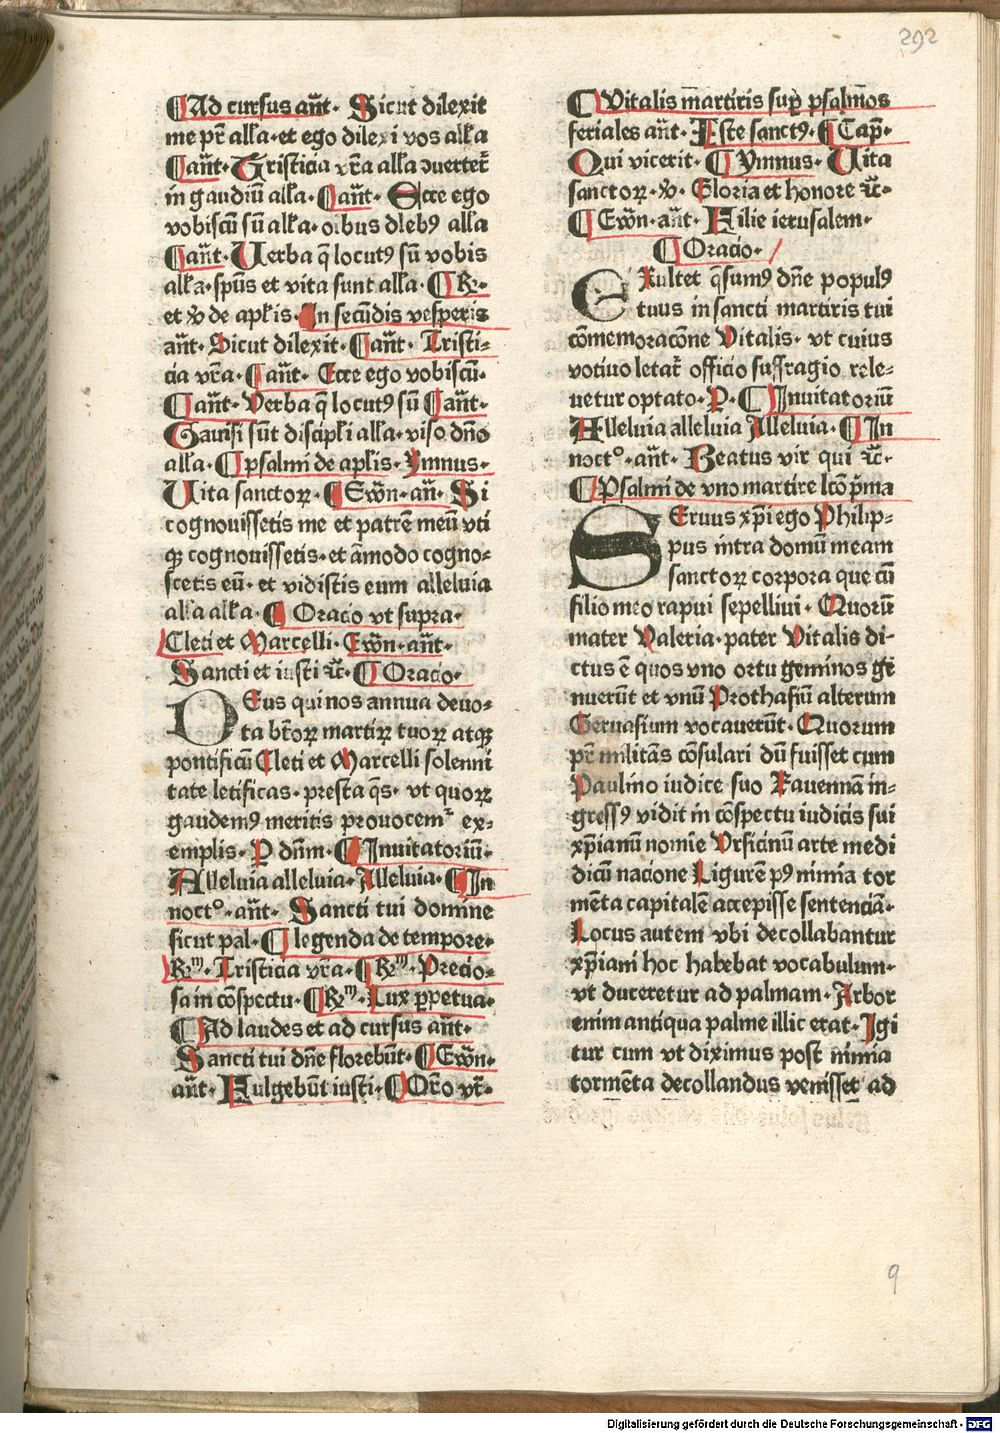 292
¶Ad cursus añt. Sicut dilexit
me pr̄ alła. et ego dilexi vos alła
¶añt. Tristicia vr̄a alła ɔuertet᷑
in gaudiū alła. ¶añt. Ecce ego
vobiscū sū alła. oībus diebꝰ alła
¶añt. Verba q̄ locutꝰ sū vobis
alła. spūs et vita sunt alła. ¶℞.
et ℣ de apłis. In secūdis vesperis
añt. Sicut dilexit. ¶añt. Tristi⸗
cia vr̄a. ¶añt. Ecce ego vobiscū.
¶añt. Verba q̄ locutꝰ sū ¶añt.
Gauisi sūt discipłi alła. viso dn̄o
alła. ¶psalmi de apłis. Ymnus.
Uita sanctoꝝ. ¶Ewn̄. añ. Si
cognouissetis me et patrē meū vti
qꝫ cognouissetis. et āmodo cogno⸗
scetis eū. et vidistis eum alleluia
alla alla. ¶Oracio vt supra.
Cleti et Marcelli. Ewn̄. añt.
Sancti et iusti ⁊c̄. ¶Oracio.
DEus qui nos annua deuo⸗
ta btōꝝ martiꝝ tuoꝝ atqꝫ
pontificū Cleti et Marcelli solenni
tate letificas. presta q̄s. vt quoꝝ
gaudemꝰ meritis prouocem᷑ ex⸗
emplis. P dn̄m. ¶Inuitatoriū.
Alleluia alleluia. Alleluia. ¶In
noct°. añt. Sancti tui domine
sicut pal. ¶legenda de tempore.
℞ᵐ. Tristicia vr̄a. ¶℞ᵐ. Precio⸗
sa in cōspectu. ¶℞ᵐ. Lux ꝑpetua.
¶Ad laudes et ad cursus añt.
Sancti tui dn̄e florebūt. ¶Ewn̄.
añt. Fulgebūt iusti. ¶Orō vt̄.
¶Vitalis m̄artiris sup̱ psalm̄os
feriales añt. Iste sanctꝰ. ¶Cap̄.
Qui vicerit. ¶Ymnus. Uita
sanctoꝝ. ℣. Gloria et honore ⁊c̄.
¶Ewn̄. añt. Filie ierusalem.
¶Oracio.
EXultet q̄sumꝰ dn̄e populꝰ
tuus in sancti martiris tui
cōmemoracōne Vitalis. vt cuius
votiuo letat᷑ officio suffragio rele⸗
uetur optato. P. ¶Inuitatoriū
Alleluia alleluia Alleluia. ¶In
noct°. añt. Beatus vir qui ⁊c̄.
¶Psalmi de vno martire lcō p̄ma
SEruus xp̄i ego Philip⸗
pus intra domū meam
sanctoꝝ corpora que cū
filio meo rapui sepelliui. Quorū
mater Valeria. pater Vitalis di⸗
ctus ē quos vno ortu geminos ge
nuerūt et vnū Prothasiū alterum
Geruasium vocauerūt. Quorum
pr̄ militās cōsulari dū fuisset cum
Paulino iudice suo Rauennā in⸗
gressꝰ vidit in cōspectu iudicis sui
xp̄ianū nomīe Vrsicinū arte medi
dicū nacione Ligurē pꝰ nimia tor
mēta capitalē accepisse sentenciā.
Locus autem vbi decollabantur
xp̄iani hoc habebat vocabulum.
vt duceretur ad palmam. Arbor
enim antiqua palme illic erat. Igi
tur cum vt diximus post nimia
tormēta decollandus venisset ad
9
Digitalisierung gefördert durch die Deutsche Forschungsgemeinschaft - DFG